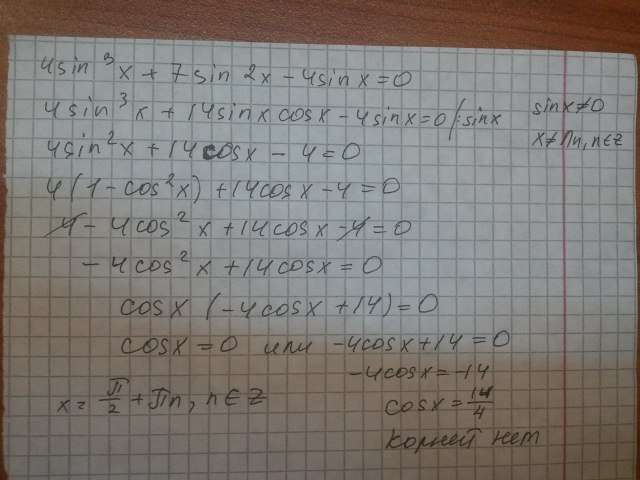 4sin³x + 7sin2x - 4sinx = 0
4sin³x + 14sinx cosx - 4sinx = 0 /:sinx sinx ≠ 0
x ≠ Пn, n∈Z
4sin²x + 14cosx - 4 = 0
4(1 - cos²x) + 14cosx - 4 = 0
4 - 4cos²x + 14cosx - 4 = 0
- 4cos²x + 14cosx = 0
cosx (-4cosx + 14) = 0
cosx = 0 или -4cosx + 14 = 0
-4cosx = -14
x = П/2 + Пn, n∈Z cosx = 14/4
Корней нет